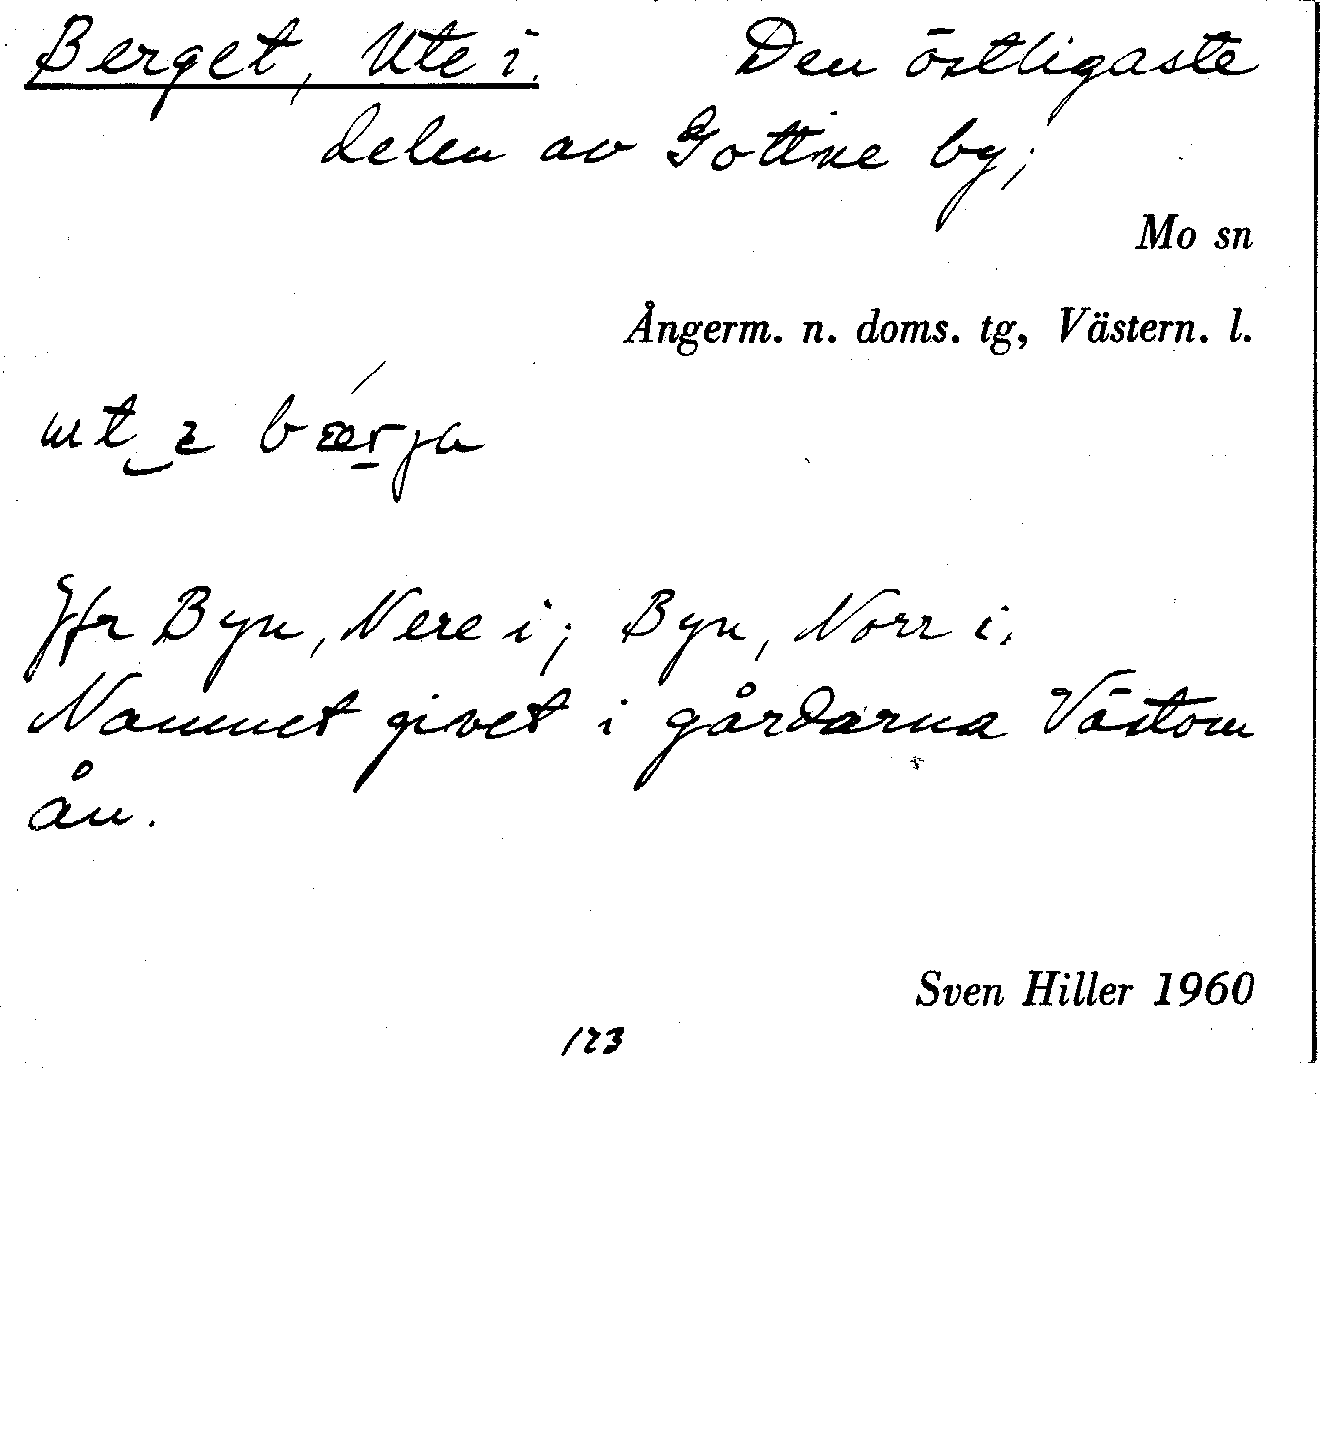 Berget, Ute i. Den östligaste
delen av Gottne by;
Mo sn
Ångerm. n. doms. tg, Västern. l.
ut‿ɪ bǽrja
Jfr Byn, Nere i; Byn, Norr i.
Namnet givet i gårdarna Västom
ån.
Sven Hiller 1960
123